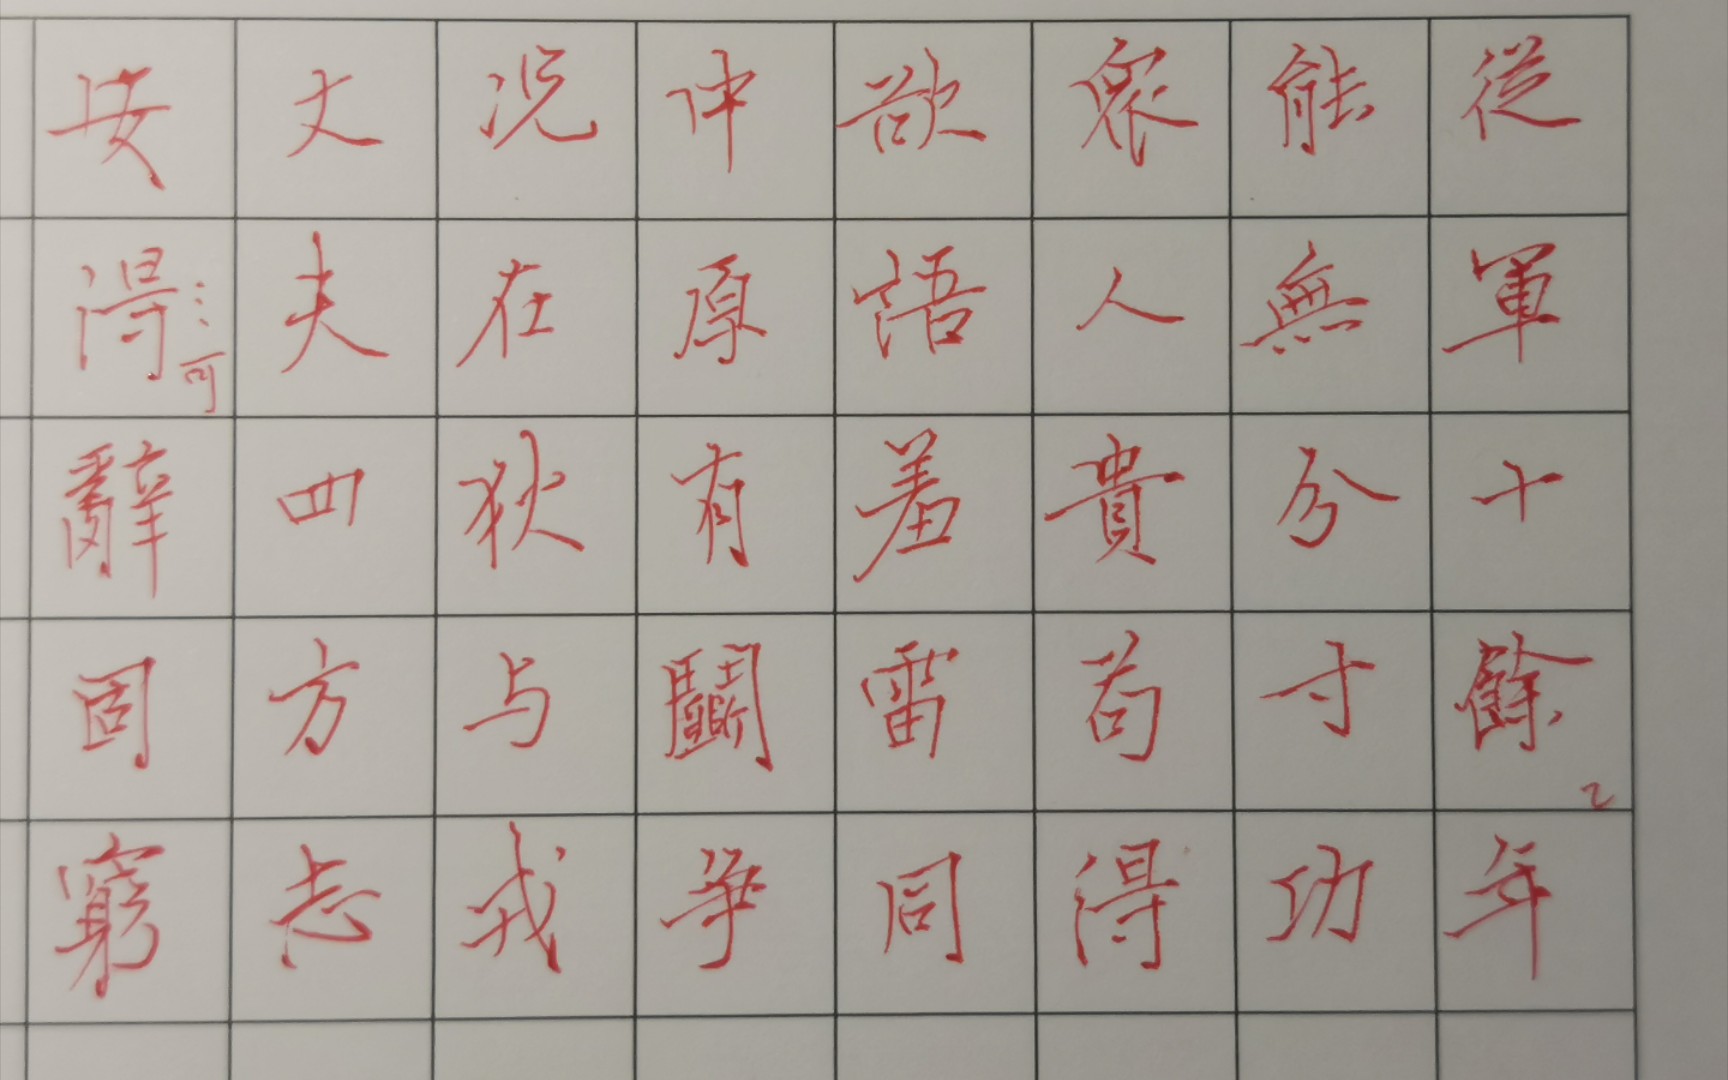 從軍十餘年
能無分寸功
衆人貴苟得
欲語羞雷同
中原有鬭争
况在狄与戎
丈夫四方志
安得辭固窮
可